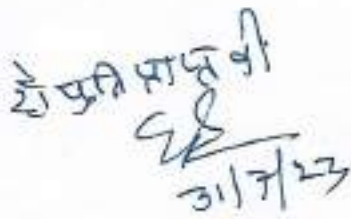 दो प्रति प्राप्त की
31/7/23